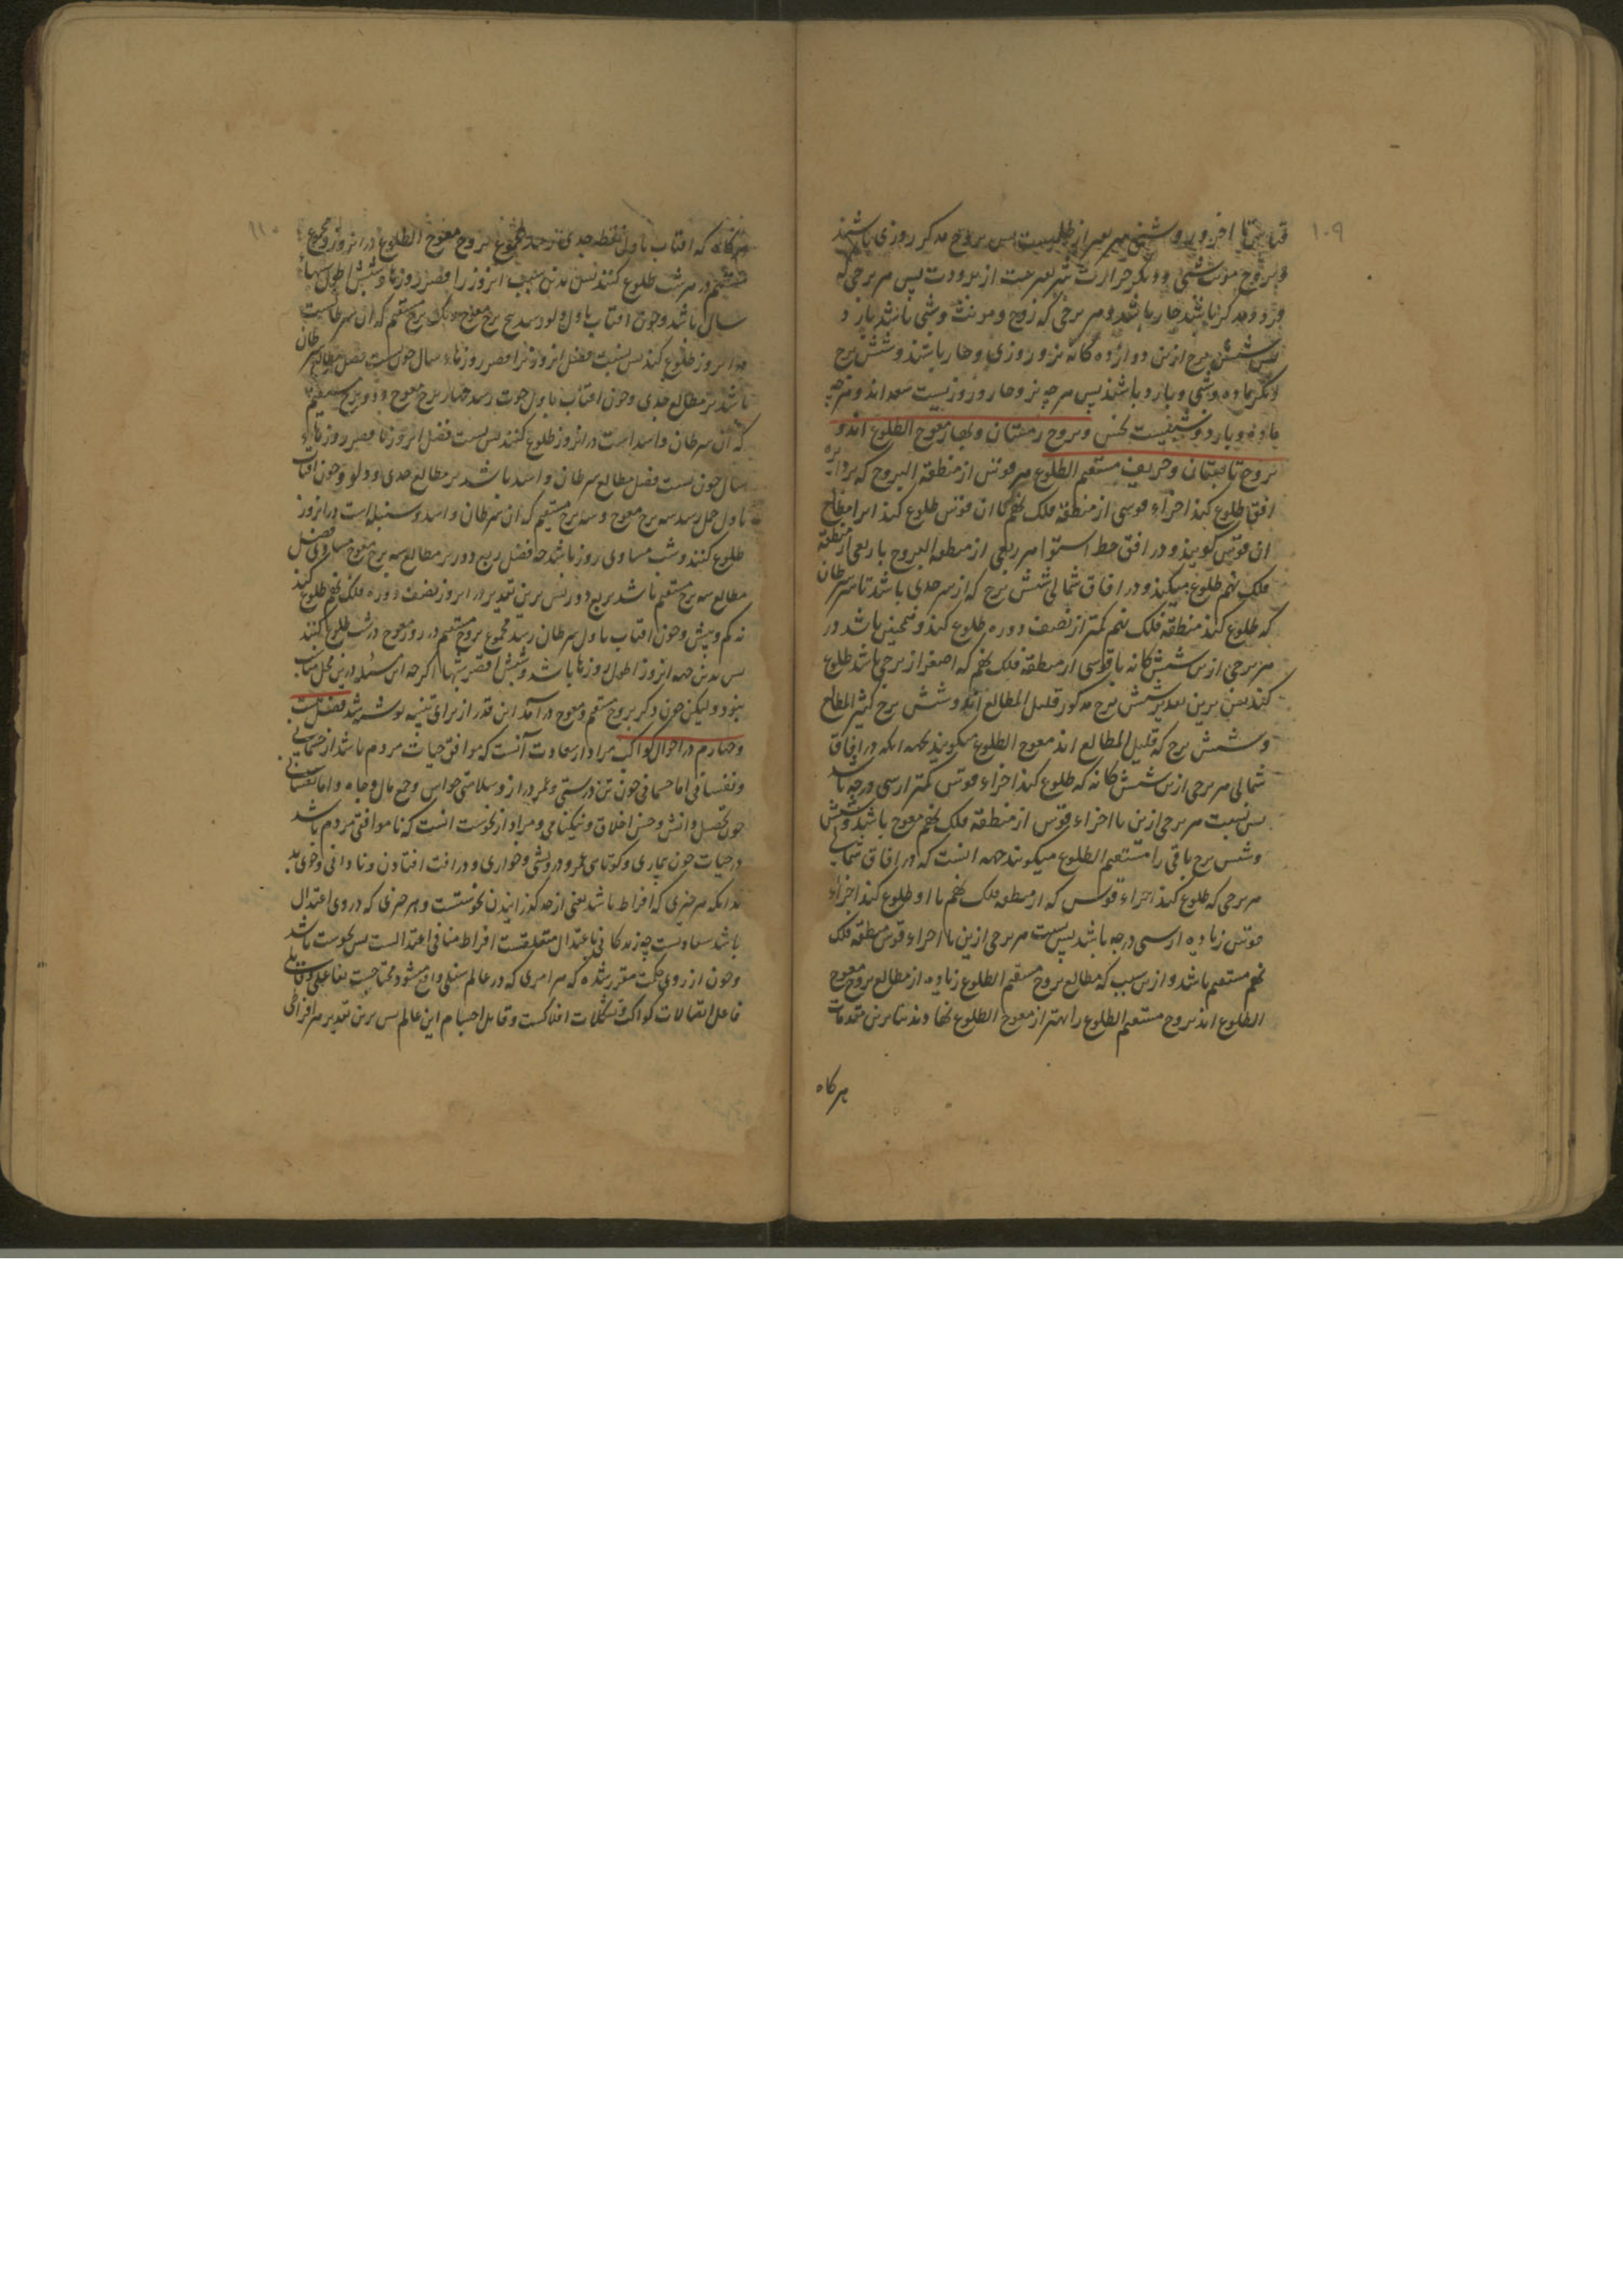 ۱۰۹
روشنی از ظلمت پس بروج مذکر روزی باشند
و بروج مونث شبی و دیگر حرارت از برودت پس هر برجی که
فرد و مذکر باشد حار باشد و هر برجی که زوج و مونث و شبی باشد بارد
پس شش برج ازین دوازده گانه نر و روزی و حار باشند و شش برج
دیگر ماده و شبی و بارد باشند پس هر چه نر و حار و روزیست سعد اند و هر چه
ماده و بارد و شبیست نحس و بروج زمستان و بهار معوج الطلوع اند و
بروج تابستان و خریف مستقیم الطلوع هر قوس از منطقه البروج که بر دایره
افق طلوع کند اجزاء قوسی از منطقه فلک نهم که با آن قوس طلوع کند انرا مطالع
ان قوس گویند و در افق خط استوا هر ربعی از منطقه البروج با ربعی از منطقه
فلک نهم طلوع میکند و در افاق شمالی شش برج که از سر جدی باشد تا سر سرطان
که طلوع کند منطقه فلک نهم کمتر از نصف دوره طلوع کند و همچنین باشد در
هر برجی ازین شش گانه با قوسی از منطقه فلک نهم که اصغر از برجی باشد طلوع
کند پس برین تقدیر شش برج مذکور قلیل المطالع اند و شش برج کثیر المطالع
و شش برج که قلیل المطالع اند معوج الطلوع میگویند بجهه انکه در افاق
شمالی هر برجی ازین شش گانه که طلوع کند اجزاء قوس کمتر از سی درجه باشد
پس نسبت هر برجی ازین با اجزاء قوس از منطقه فلک نهم معوج باشد و شش
و شش برج باقی را مستقیم الطلوع میگویند جهه انست که در افاق شمالی
هر برجی که طلوع کند اجزاء قوس که از منطقه فلک نهم با او طلوع کند اجزاء
قوس زیاده از سی درجه باشد پس نسبت هر برجی ازین با اجزاء قوس منطقه فلک
نهم مستقیم باشد و ازین سبب که مطالع بروج مستقیم الطلوع زیاده از مطالع بروج معوج
الطلوع اند بروج مستقیم الطلوع را بهتر از معوج الطلوع نهادند بنا برین مقدمات
هرگاه
۱۱۰
هرگاه که افتاب باول نقطه جدی رسد مجموع بروج معوج الطلوع در انروز و مجموع
مستقیم در شب طلوع کنند پس بدین سبب انروز اقصر روزها و شبش اطول شبهاء
سال باشد و چون افتاب باول دلو رسد پنج برج معوج و یک برج مستقیم که ان سرطانست
در انروز طلوع کند پس نسبت فضل انروز بر اقصر روزهاء سال چون نسبت فضل مطالع سرطان
باشد بر مطالع جدی و چون افتاب باول حوت رسد چهار برج معوج و دو برج مستقیم
که ان سرطان و اسد است در انروز طلوع کنند پس نسبت فضل انروز با اقصر روزهاء
سال چون نسبت فضل مطالع سرطان و اسد باشد بر مطالع جدی و دلو و چون افتاب
باول حمل رسد سه برج معوج و سه برج مستقیم که ان سرطان و اسد و سنبله است در انروز
طلوع کنند و شب مساوی روز باشد چه فضل ربع دور بر مطالع سه برج معوج مساوی فضل
مطالع سه برج مستقیم باشد بر ربع دور پس برین تقدیر در انروز نصف دوره فلک نهم طلوع کند
نه کم و بیش و چون افتاب باول سرطان رسد مجموع بروج مستقیم در روز و معوج در شب طلوع کنند
پس بدین جهه انروز اطول روزها باشد و شبش اقصر شبها اگرچه این مسئله درین محل مناسب
نبود و لیکن چون ذکر بروج مستقیم و معوج در آمد این قدر از برای تنبیه نوشته شد فصل بیست
و چهارم در احوال کواکب مراد از سعادت آنست که موافق حیات مردم باشد از جسمانی
و نفسانی اما جسمانی چون تن درستی و عمر دراز و سلامتی حواس و جمع مال و جاه و اما نفسانی
چون تحصیل دانش و حسن اخلاق و نیکنامی و مراد از نحوست انست که ناموافق مردم باشد
در حیات چون بیماری و کوتاهی عمر و درویشی و خواری و در افت افتادن و نادانی و خوی بد
بدانکه هر چیزی که افراط باشد یعنی از حد گذرانیدن نحوستست و هر چیزی که در وی اعتدال
باشد سعادتست چه زندگانی باعتدال متعلقست افراط منافی اعتدالست پس نحوست باشد
و چون از روی حکمت مقرر شده که هر امری که در عالم سفلی واقع میشود محتاجست بفاعلی و قابلی
فاعل اتصالات کواکب و تشکلات افلاکست و قابل اجسام این عالم پس برین تقدیر هر افراطی